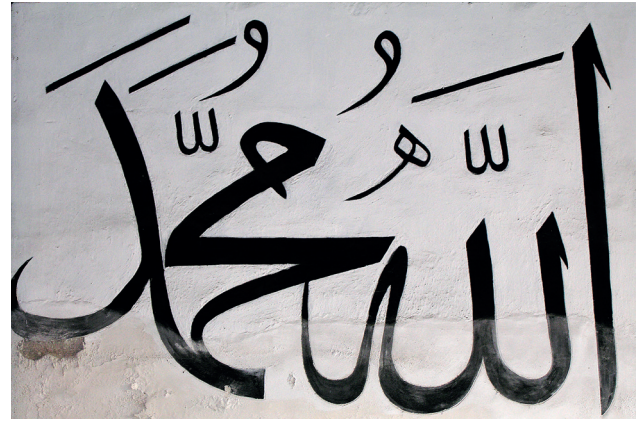 اللّٰهُ مُحَمَّدٌ